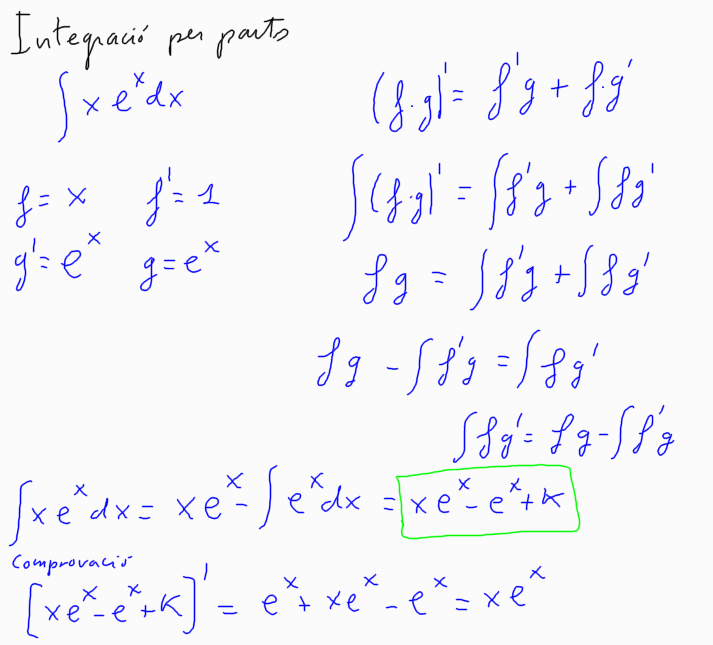 Integració per parts
∫ x eˣ dx
f = x f' = 1
g' = eˣ g = eˣ
(f·g)' = f'g + f·g'
∫(f·g)' = ∫f'g + ∫fg'
fg = ∫f'g + ∫fg'
fg - ∫f'g = ∫fg'
∫fg' = fg - ∫f'g
∫x eˣ dx = x eˣ - ∫eˣ dx = x eˣ - eˣ + K
Comprovació
[xeˣ - eˣ + K]' = eˣ + xeˣ - eˣ = xeˣ